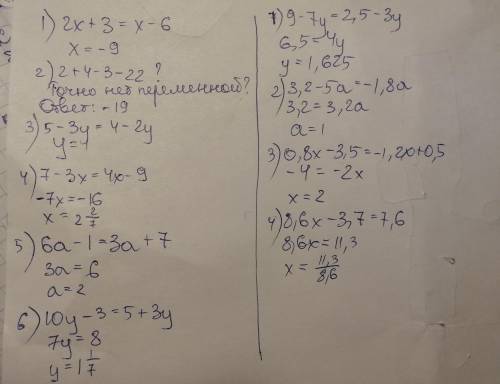 1) 2x + 3 = x - 6
x = -9
2) 2 + 4 - 3 - 22 ?
Точно нет переменной?
Ответ: -19
3) 5 - 3y = 4 - 2y
y = 1
4) 7 - 3x = 4x - 9
-7x = -16
x = 2 2/7
5) 6a - 1 = 3a + 7
3a = 6
a = 2
6) 10y - 3 = 5 + 3y
7y = 8
y = 1 1/7
1) 9 - 7y = 2,5 - 3y
6,5 = 4y
y = 1,625
2) 3,2 - 5a = -1,8a
3,2 = 3,2a
a = 1
3) 0,8x - 3,5 = -1,2x + 0,5
-4 = -2x
x = 2
4) 8,6x - 3,7 = 7,6
8,6x = 11,3
x = 11,3/8,6